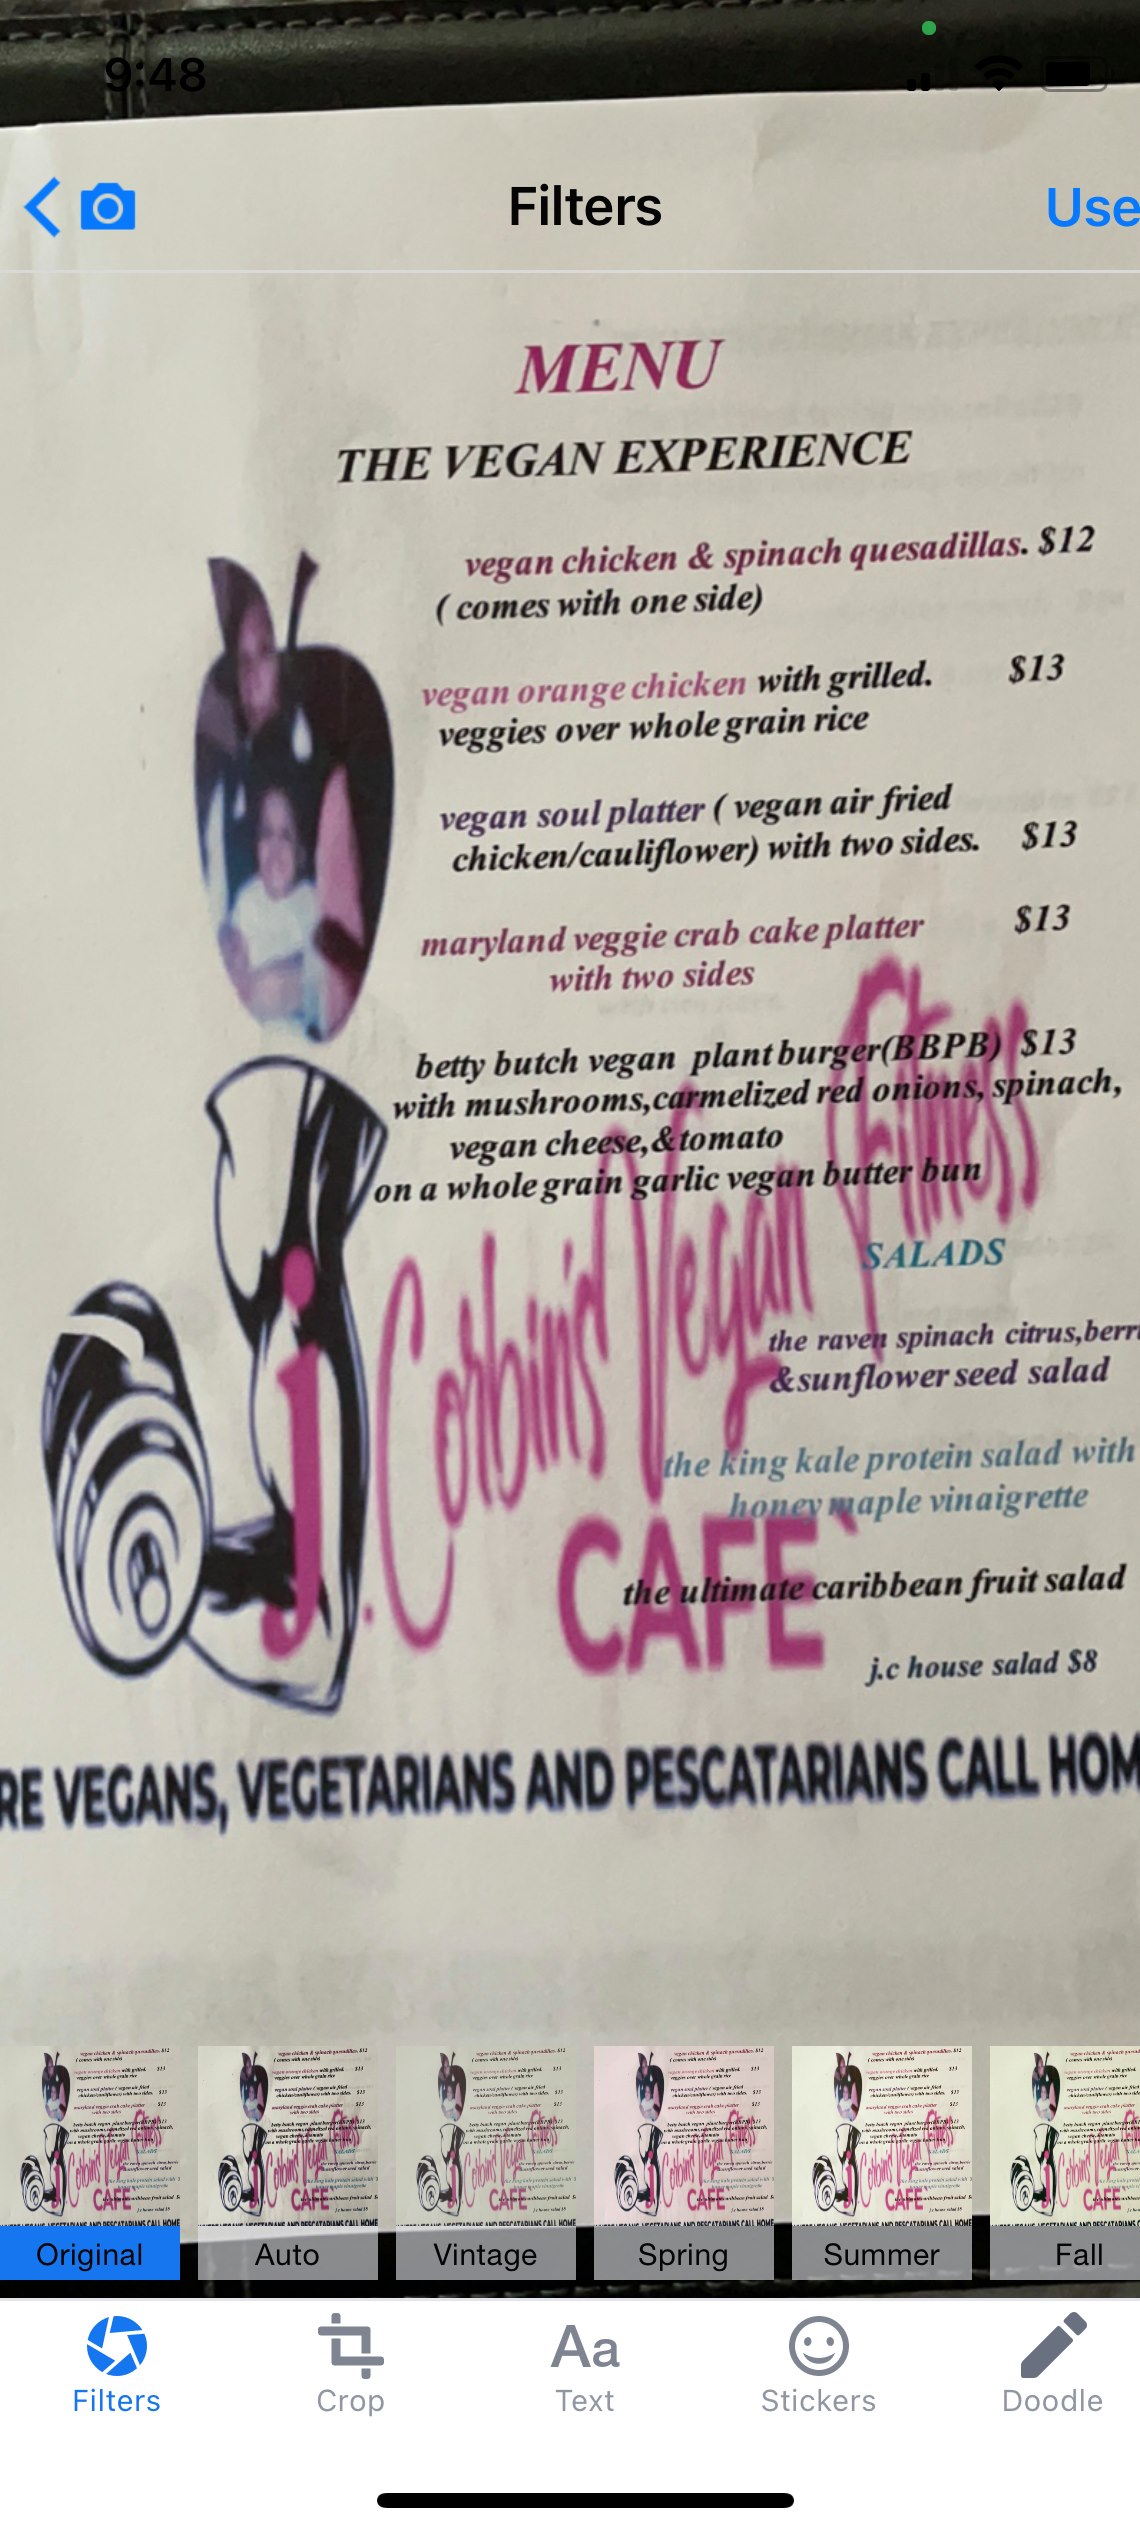 9:48
Filters
Use
MENU
THE VEGAN EXPERIENCE
vegan chicken & spinach quesadillas. $12
( comes with one side)
vegan orange chicken with grilled. $13
veggies over whole grain rice
vegan soul platter ( vegan air fried
chicken/cauliflower) with two sides. $13
maryland veggie crab cake platter $13
with two sides
betty butch vegan plant burger(BBPB) $13
with mushrooms,carmelized red onions, spinach,
vegan cheese,&tomato
on a whole grain garlic vegan butter bun
j.Corbin's Vegan Fitness
CAFE`
SALADS
the raven spinach citrus,berri
&sunflower seed salad
the king kale protein salad with
honey maple vinaigrette
the ultimate caribbean fruit salad
j.c house salad $8
RE VEGANS, VEGETARIANS AND PESCATARIANS CALL HOM
Original
Auto
Vintage
Spring
Summer
Fall
Filters
Crop
Aa
Text
Stickers
Doodle